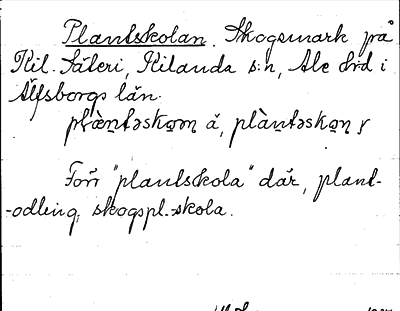 Plantskolan. Skogsmark på
Kil. Säteri, Kilanda s:n, Ale hrd i
Älfsborgs län.
plànt̬əskọn å, plànt̬əskọn y
Förr "plantskola" där, plant-
-odling, skogspl.-skola.